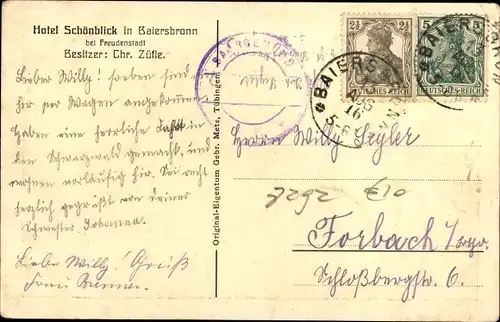 Hotel Schönblick in Baiersbronn
bei Freudenstadt
Besitzer: Chr. Züfle.
Lieber Willy! soeben sind
hier per Wagen angekommen.
Haben eine herrliche Fahrt in
den Schwarzwald gemacht, und
wohnen vorläufig hier. Sei recht
herzlich gegrüßt von deiner
Schwester Johanna.
Lieber Willy! Gruß
Original-Eigentum Gebr. Metz, Tübingen
SAARGEMÜND
2½ 2½
DEUTSCHES REICH
5
DEUTSCHES REICH
BAIERSBRONN
AUG
16
5-6 N
BAIERS
Herrn Willy Segler
7292 €10
Forbach/Lothr.
Schloßbergstr. 6.